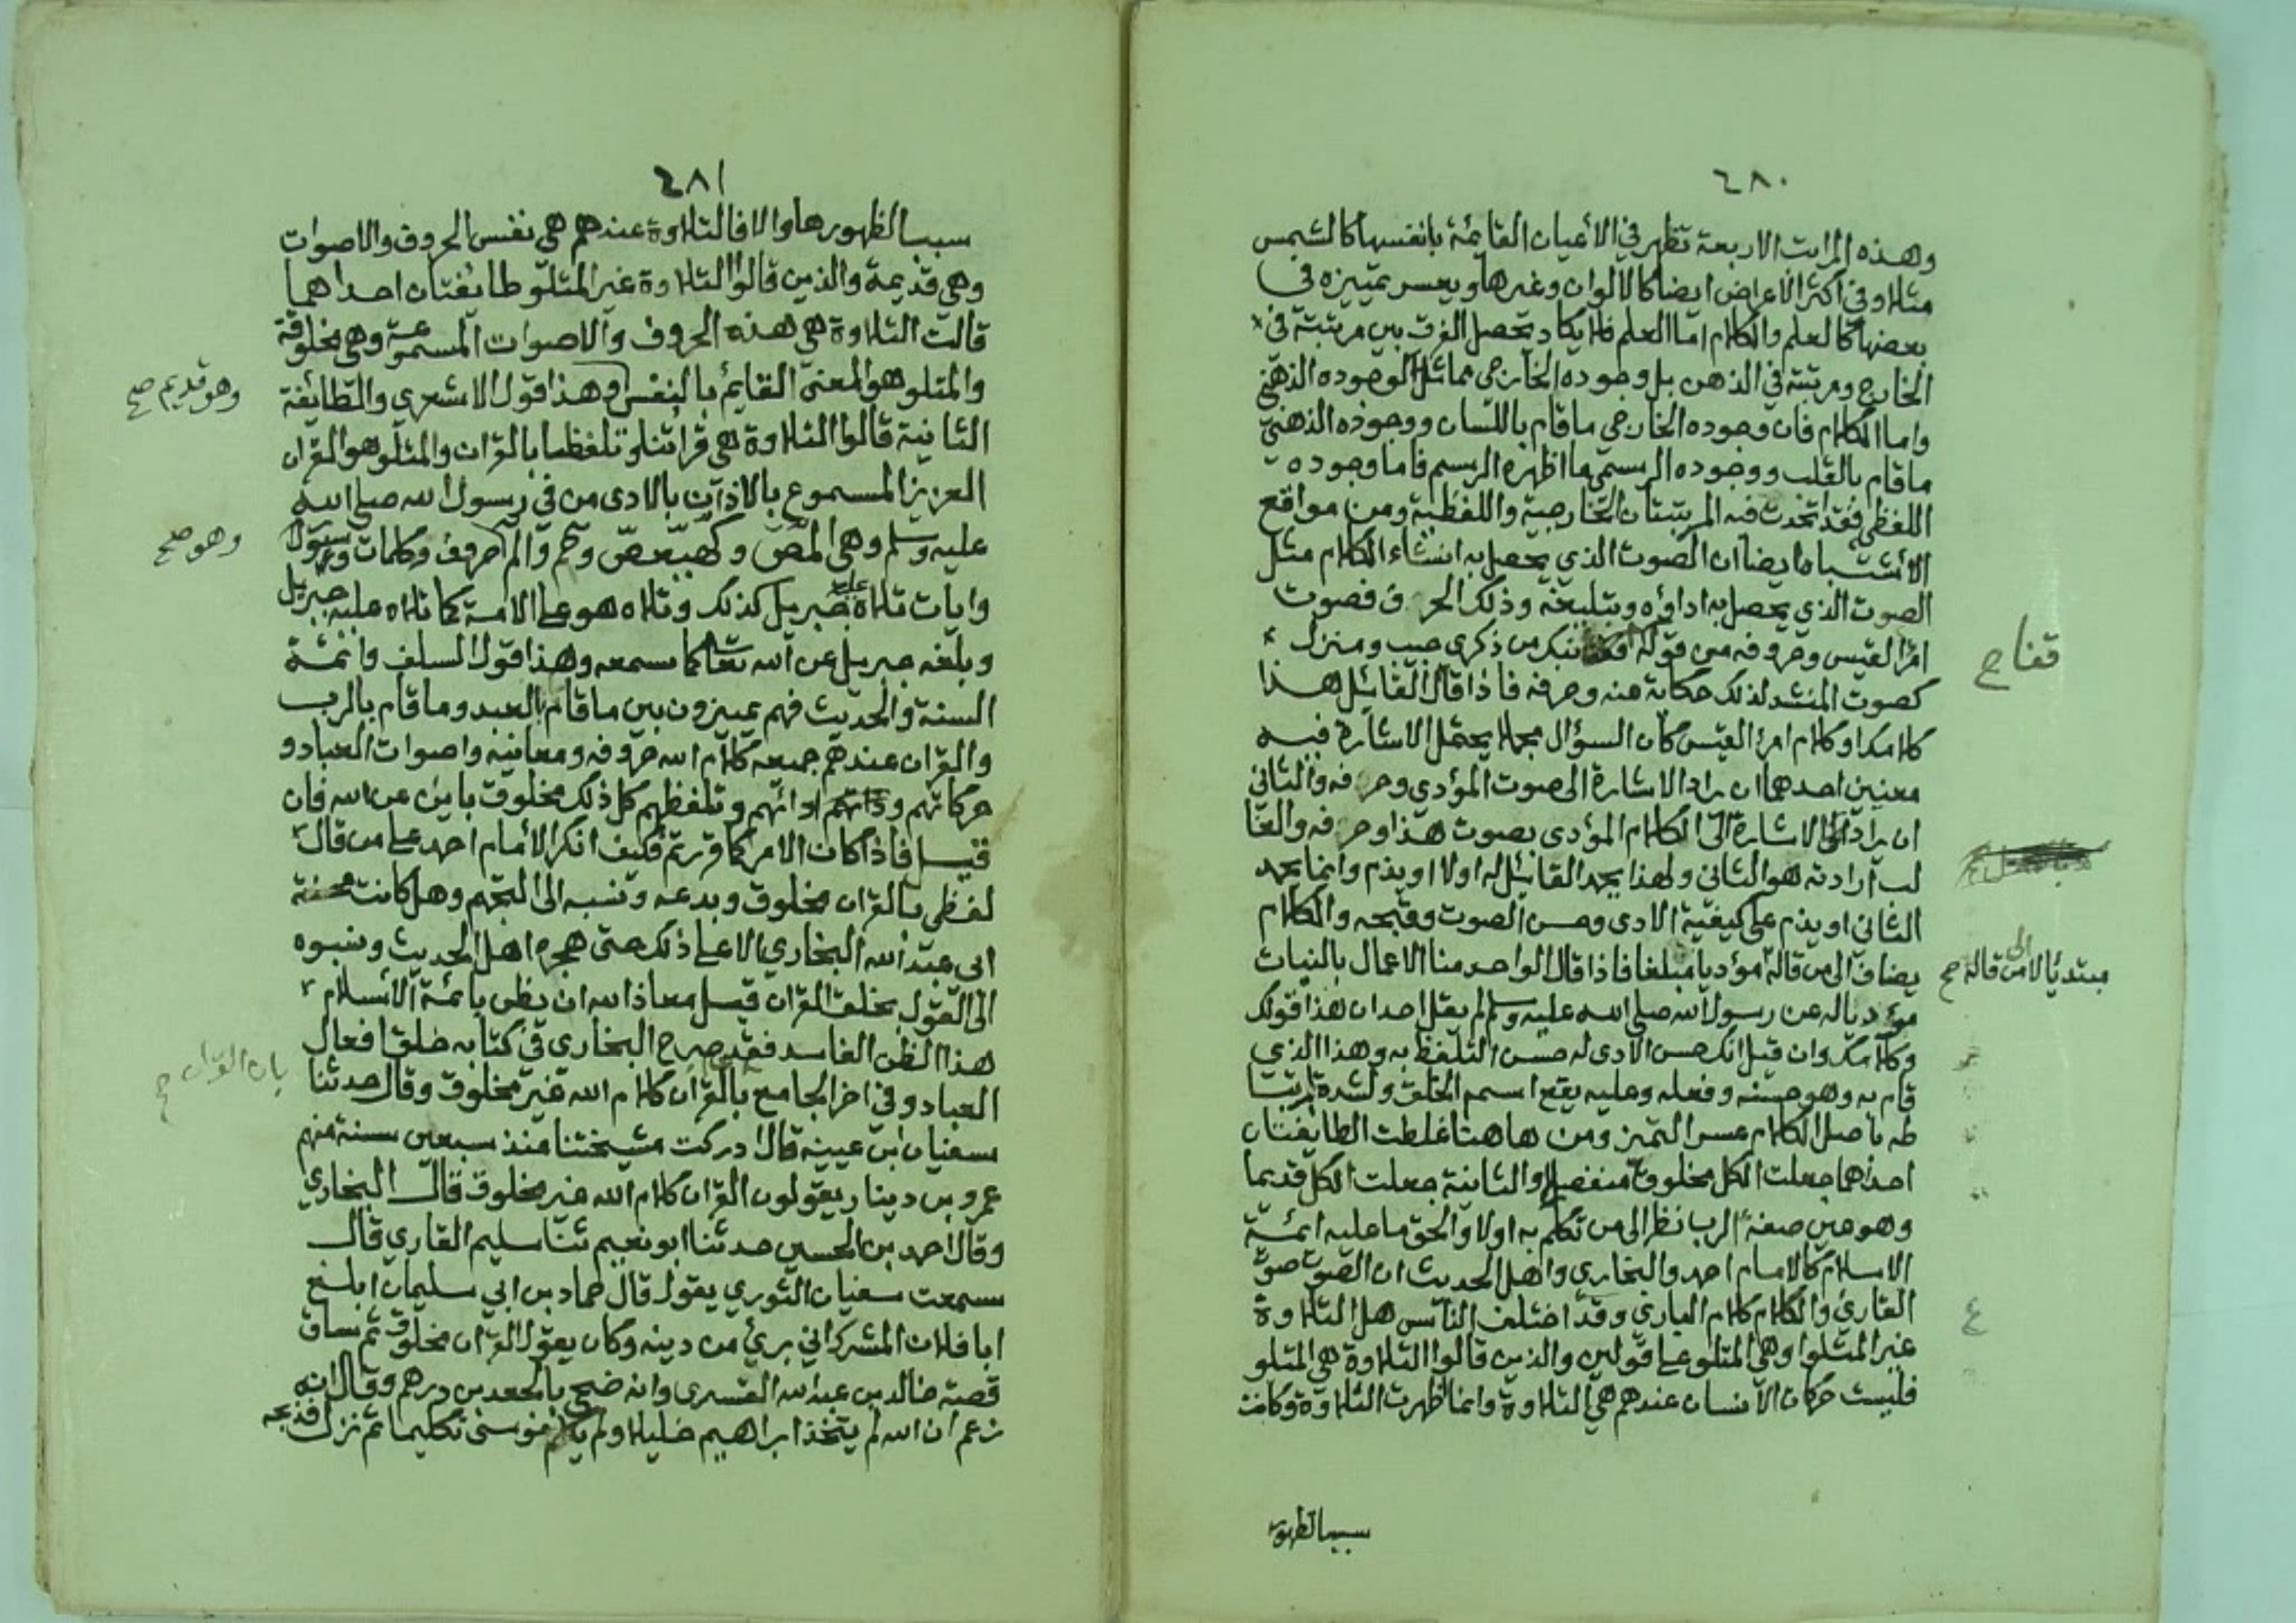 ٤٨٠
وهذه المراتب الاربعة تظهر في الأعيان القائمة بانفسها كالشمس
مثلا وفي اكثر الأعراض ايضا كالالوان وغيرها ويعسر تمييزه في
بعضها كالعلم والكلام اما العلم فلا يكاد يحصل الفرق بين مرتبته في
الخارج ومرتبته في الذهن بل وجوده الخارجي مماثل لوجوده الذهني
واما الكلام فان وجوده الخارجي ما قام باللسان ووجوده الذهني
ما قام بالقلب ووجوده الرسمي ما اظهره الرسم فاما وجوده
اللفظي فقد اتحدت فيه المرتبتان الخارجية واللفظية ومن مواقع
الأشتباه ايضا ان الصوت الذي يحصل به انشاء الكلام مثل
الصوت الذي يحصل به اداؤه وتبليغه وذلك الحرف فصوت
امرؤ القيس وحروفه من قوله نبك من ذكرى حبيب ومنزل
قفا صح
كصوت المنشد لذلك حكاية عنه وحرفه فاذا قال القائل هذا
كلامك او كلام امرؤ القيس كان السؤال مجملا يحتمل الاشارة فيه
معنيين احدهما ان يراد الاشارة الى صوت المؤدي وحرفه والثاني
ان يراد الاشارة الى الكلام المؤدى بصوت هذا وحرفه والغا
لب ارادته هو الثاني ولهذا يحمد القائل له اولا او يذم وانما يحمد
الثاني او يذم على كيفية الادى وحسن الصوت وقبحه والكلام
يضاف الى من قاله مؤديا مبلغا فاذا قال الواحد منا الاعمال بالنيات
مبتدئا لا الى من قاله صح
مؤديا له عن رسول الله صلى الله عليه وسلم لم يقل احد ان هذا قولك
وكلامك وان قيل انك حسن الادى له حسن التلفظ به وهذا الذي
قام به وهو حسنه وفعله وعليه يقع اسم الخلق ولشدة ارتبا
طه باصل الكلام عسر التميز ومن هاهنا غلطت الطايفتان
احداهما جعلت الكل مخلوقا منفصلا والثانية جعلت الكل قديما
وهو عين صفة الرب نظرا الى من تكلم به اولا والحق ما عليه ائمة
الاسلام كالامام احمد والبخاري واهل الحديث ان الصوت صوت
القارئ والكلام كلام الباري وقد اختلف الناس هل التلاوة
غير المتلوا وهي المتلو على قولين والذين قالوا التلاوة هي المتلو
فليست حركات الانسان عندهم هي التلاوة وانما ظهرت التلاوة وكانت
سببا لظهور
٤٨١
سببا لظهورها والا فالتلاوة عندهم هي نفس الحروف والاصوات
وهي قديمة والذين قالوا التلاوة غير المتلو طايفتان احداهما
قالت التلاوة هي هذه الحروف والاصوات المسموعة وهي مخلوقة
والمتلو هو المعنى القايم بالنفس وهذا قول الاشعري والطائفة
وهو قديم صح
الثانية قالوا التلاوة هي قرائتنا وتلفظنا بالقران والمتلو هو القران
العزيز المسموع بالاذان بالادى من في رسول الله صلى الله
عليه وسلم وهي المص وكهيعص وحم والم حروف وكلمات وسور
وهو صح
وايات تلاه عليه جبريل كذلك وتلاه هو على الامة كما تلاه عليه جبريل
وبلغه جبريل عن الله تعالى كما سمعه وهذا قول السلف وائمة
السنة والحديث فهم يميزون بين ما قام بالعبد وما قام بالرب
والقران عندهم جميعه كلام الله حروفه ومعانيه واصوات العباد و
حركاتهم وادائهم وتلفظهم كل ذلك مخلوق باين عن الله فان
قيل فاذا كان الامر كما قررتم فكيف انكر الأمام احمد على من قال
لفظي بالقران مخلوق وبدعه ونسبه الى التجهم وهل كانت محنة
ابي عبد الله البخاري الا على ذلك حتى هجره اهل الحديث ونسبوه
الى القول بخلق القران قيل معاذ الله ان يظن بائمة الأسلام
هذا الظن الفاسد فقد صرح البخاري في كتابه خلق افعال
العباد وفي اخر الجامع بالقران كلام الله غير مخلوق وقال حدثنا
بان القران صح
سفيان ابن عيينه قال ادركت مشيختنا منذ سبعين سنة منهم
عمرو بن دينار يقولون القران كلام الله غير مخلوق قال البخاري
وقال احمد بن الحسين حدثنا ابو نعيم ثنا سليم القاري قال
سمعت سفيان الثوري يقول قال حماد بن ابي سليمان ابلغ
ابا فلان المشرك اني بريء من دينه وكان يقول القران مخلوق ثم ساق
قصة خالد بن عبد الله القسرى وانه ضحى بالجعد بن درهم وقال انه
زعم ان الله لم يتخذ ابراهيم خليلا ولم يكلم موسى تكليما ثم نزل فذبحه